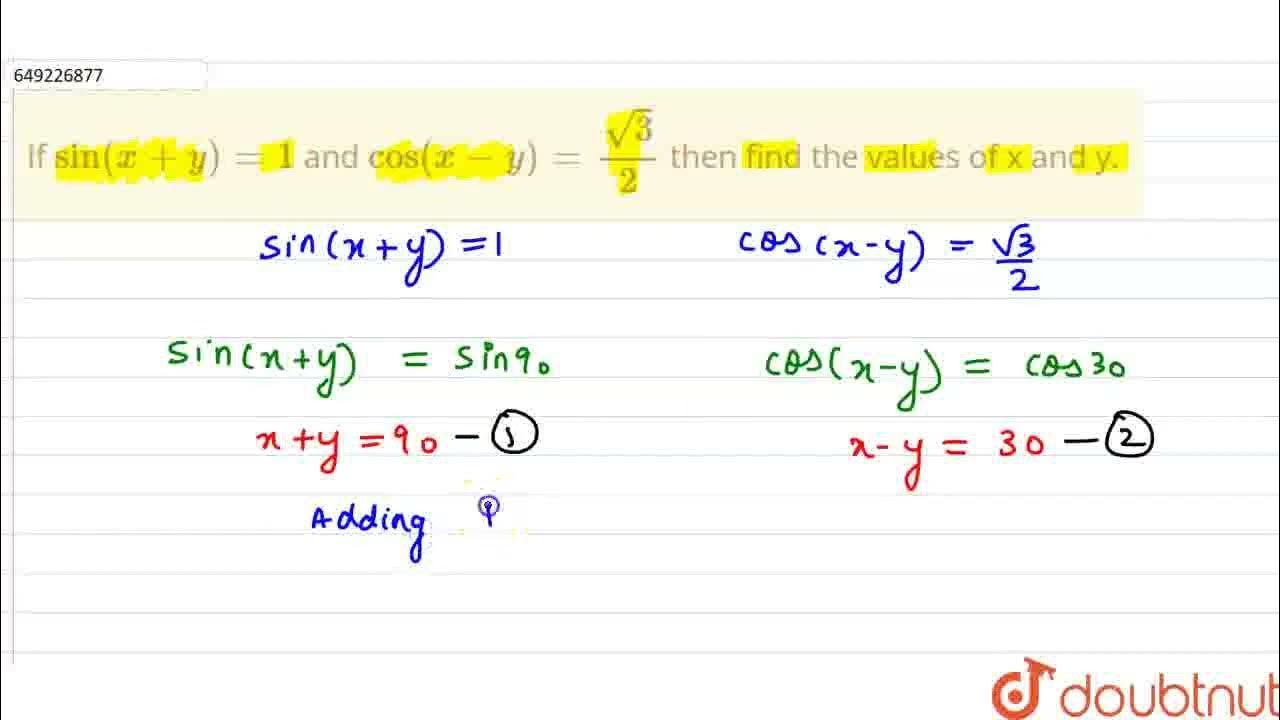 649226877
If sin(x + y) = 1 and cos(x − y) = √3/2 then find the values of x and y.
sin(x+y) = 1 cos(x-y) = √3/2
sin(x+y) = sin90 cos(x-y) = cos30
x+y = 90 - ① x-y = 30 - ②
Adding
doubtnut